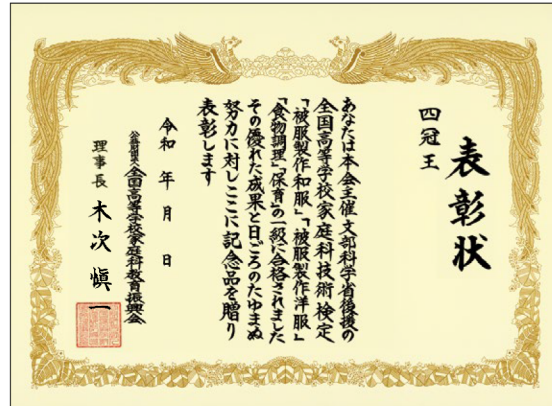 表彰状
四冠王
あなたは本会主催文部科学省後援の
全国高等学校家庭科技術検定
「被服製作和服」「被服製作洋服」
「食物調理」「保育」の一級に合格されました
その優れた成果と日ごろのたゆまぬ
努力に対しここに記念品を贈り
表彰します
令和 年 月 日
公益財団法人 全国高等学校家庭科教育振興会
理事長 木次 愼一